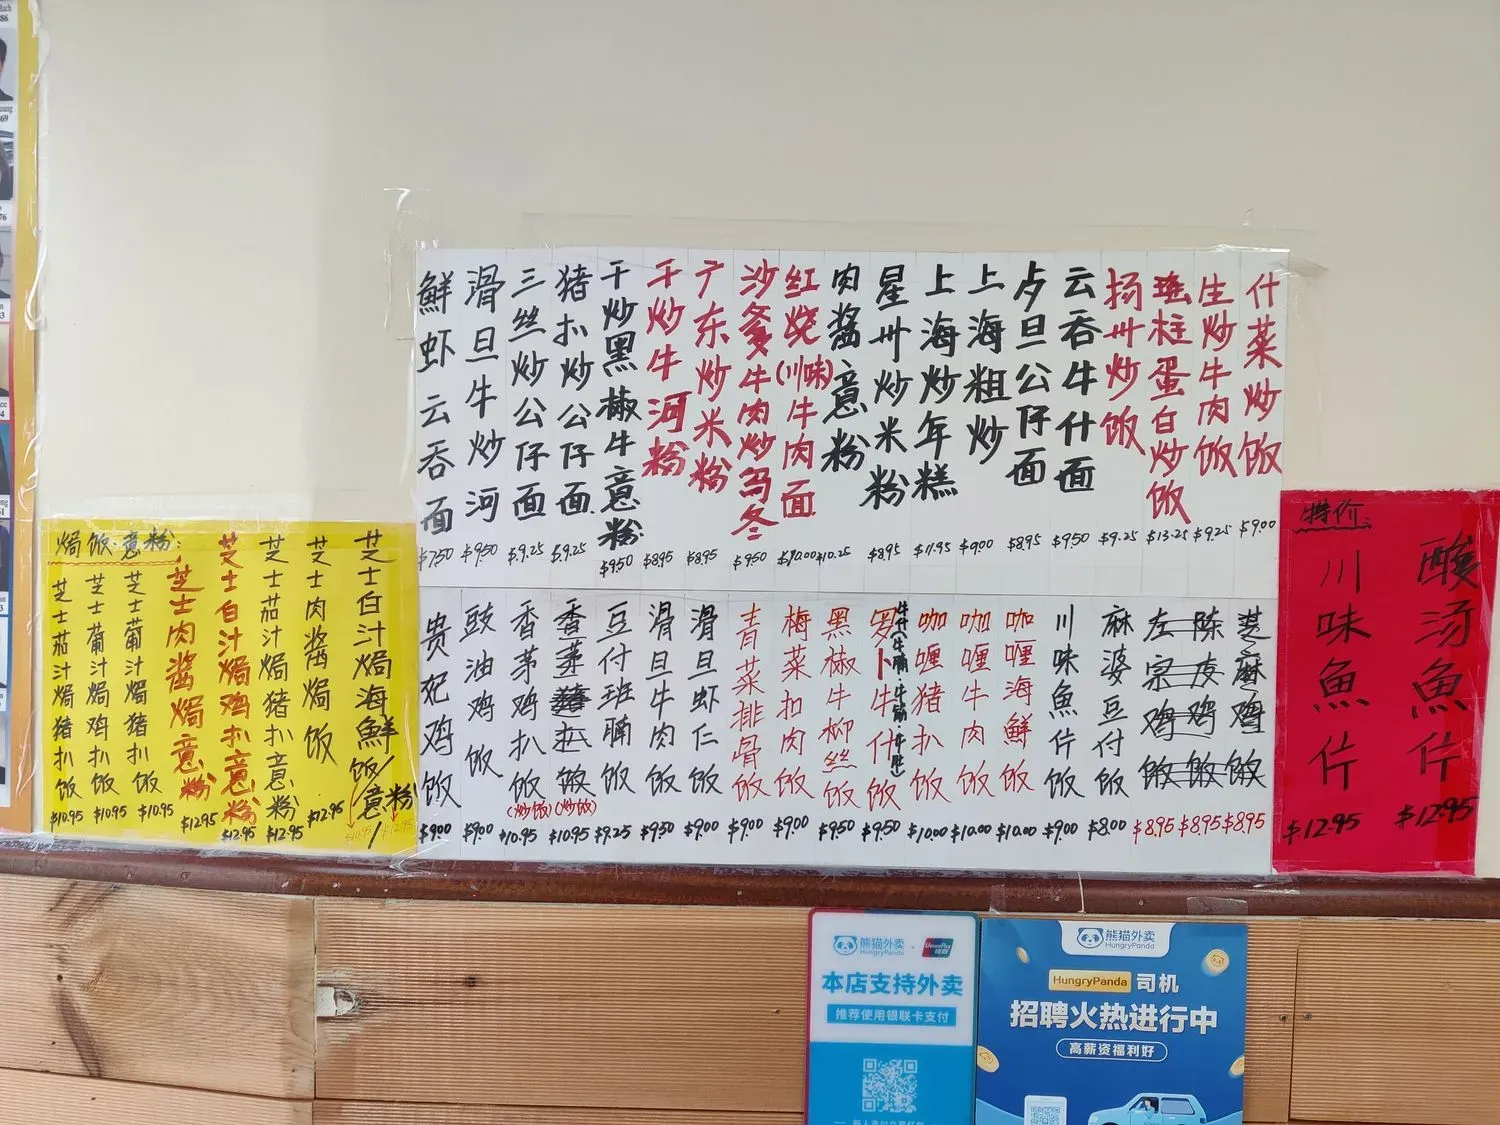 焗饭.意粉:
芝士茄汁焗猪扒饭 $10.95
芝士葡汁焗鸡扒饭 $10.95
芝士葡汁焗猪扒饭 $10.95
芝士肉酱焗意粉 $12.95
芝士白汁焗鸡扒意粉 $12.95
芝士茄汁焗猪扒意粉 $12.95
芝士肉酱焗饭 $12.95
芝士白汁焗海鲜饭/意粉 $10.95/$12.95
鮮虾云吞面 $7.50
滑旦牛炒河 $9.50
三丝炒公仔面 $9.25
猪扒炒公仔面 $9.25
干炒黑椒牛意粉 $9.50
干炒牛河粉 $8.95
广东炒米粉 $8.95
沙爹牛肉炒乌冬 $9.50
红烧(川味)牛肉面 $10.00
肉酱意粉 $10.25
星卅炒米粉 $8.95
上海炒年糕 $11.95
上海粗炒 $9.00
占旦公仔面 $8.95
云吞牛什面 $9.50
扬卅炒饭 $9.25
瑶柱蛋白炒饭 $13.25
生炒牛肉饭 $9.25
什菜炒饭 $9.00
贵妃鸡饭 $9.00
豉油鸡饭 $9.00
香茅鸡扒饭(炒饭) $10.95
香茅猪扒饭(炒饭) $10.95
豆付班腩饭 $9.25
滑旦牛肉饭 $9.50
滑旦虾仁饭 $9.00
青菜排骨饭 $9.00
梅菜扣肉饭 $9.00
黑椒牛柳丝饭 $9.50
罗卜牛什饭 $9.50
咖喱猪扒饭 $10.00
咖喱牛肉饭 $10.00
咖喱海鲜饭 $10.00
川味魚片饭 $9.00
麻婆豆付饭 $8.00
左宗鸡饭 $8.95
陈皮鸡饭 $8.95
芝麻鸡饭 $8.95
特价:
川味魚片 $12.95
酸汤魚片 $12.95
熊猫外卖
HungryPanda
UnionPay
银联
本店支持外卖
推荐使用银联卡支付
熊猫外卖
HungryPanda
HungryPanda 司机
招聘火热进行中
高薪资福利好